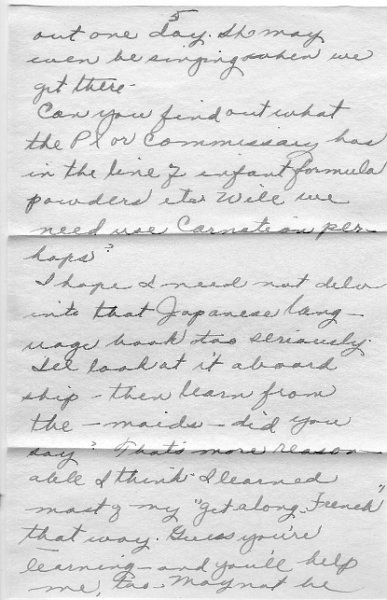 5
out one day. She may
even be singing when we
get there -
Can you find out what
the PX or Commissary has
in the line of infant formula
powders etc. Will we
need use Carnation per-
haps?
I hope I need not delve
into that Japanese lang-
uage book too seriously.
I'll look at it aboard
ship - then learn from
the - maids - did you
say? That's more reason-
able I think. I learned
most of my "get along French"
that way. Guess you're
learning - and you'll help
me, too. May not be